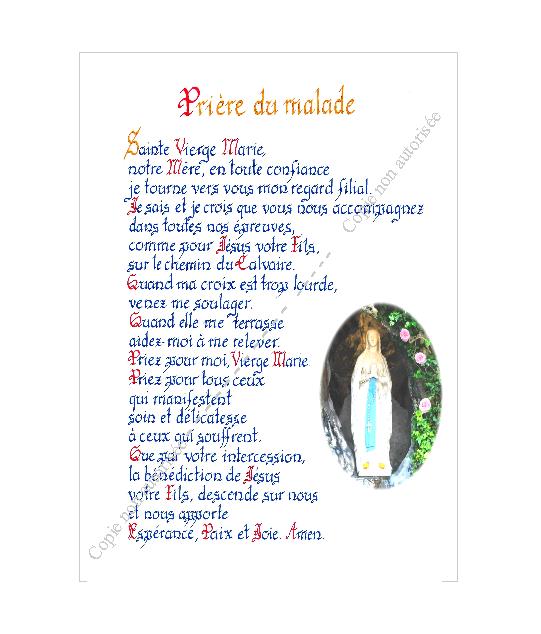 Prière du malade
Sainte Vierge Marie,
notre Mère, en toute confiance
je tourne vers vous mon regard filial.
Je sais et je crois que vous nous accompagnez
dans toutes nos épreuves,
comme pour Jésus votre Fils,
sur le chemin du Calvaire.
Quand ma croix est trop lourde,
venez me soulager.
Quand elle me terrasse
aidez-moi à me relever.
Priez pour moi, Vierge Marie
Priez pour tous ceux
qui manifestent
soin et délicatesse
à ceux qui souffrent.
Que par votre intercession,
la bénédiction de Jésus
votre Fils, descende sur nous
et nous apporte
Espérance, Paix et Joie. Amen.
Copie non autorisée
Copie non autorisée